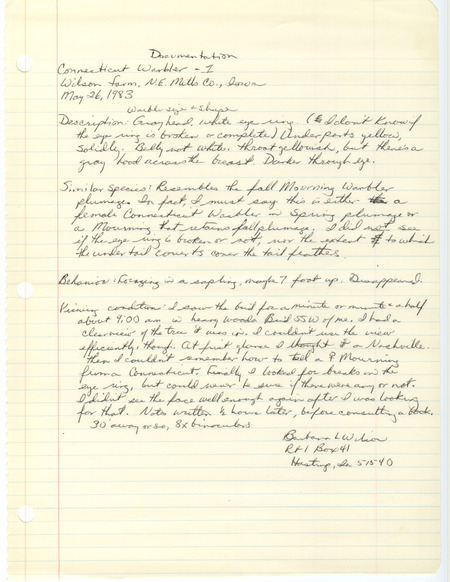 Documentation
Connecticut Warbler - 1
Wilson farm, N.E. Mills Co., Iowa
May 26, 1983
Warbler size & shape
Description: Gray head, white eye ring. (I don't know if
the eye ring is broken or complete) Underparts yellow,
solidly. Belly not white. throat yellowish, but there's a
gray hood across the breast. Darker through eye.
Similar Species: Resembles the fall Mourning Warbler
plumage. In fact, I must say this is either a
female Connecticut Warbler in Spring plumage or
a Mourning that retains fall plumage. I did not see
if the eye ring is broken or not, nor the extent to which
the undertail coverts cover the tail feathers.
Behavior: Foraging in a sapling, maybe 7 foot up. Disappeared.
Viewing condition: I saw the bird for a minute or minute & a half
about 9:00 am in heavy woods. Bird SSW of me. I had a
clear view of the tree it was in. I couldn't use the view
efficiently, though. At first glance I thought it a Nashville.
then I couldn't remember how to tell a ♀ Mourning
from a Connecticut, finally I looked for breaks in the
eye ring, but could never be sure if there were any or not.
I didn't see the face well enough again after I was looking
for that. Notes written hours later, before consulting a book.
30' away or so, 8x binoculars
Barbara L Wilson
Rt 1 Box 41
Hastings, Ia 51540